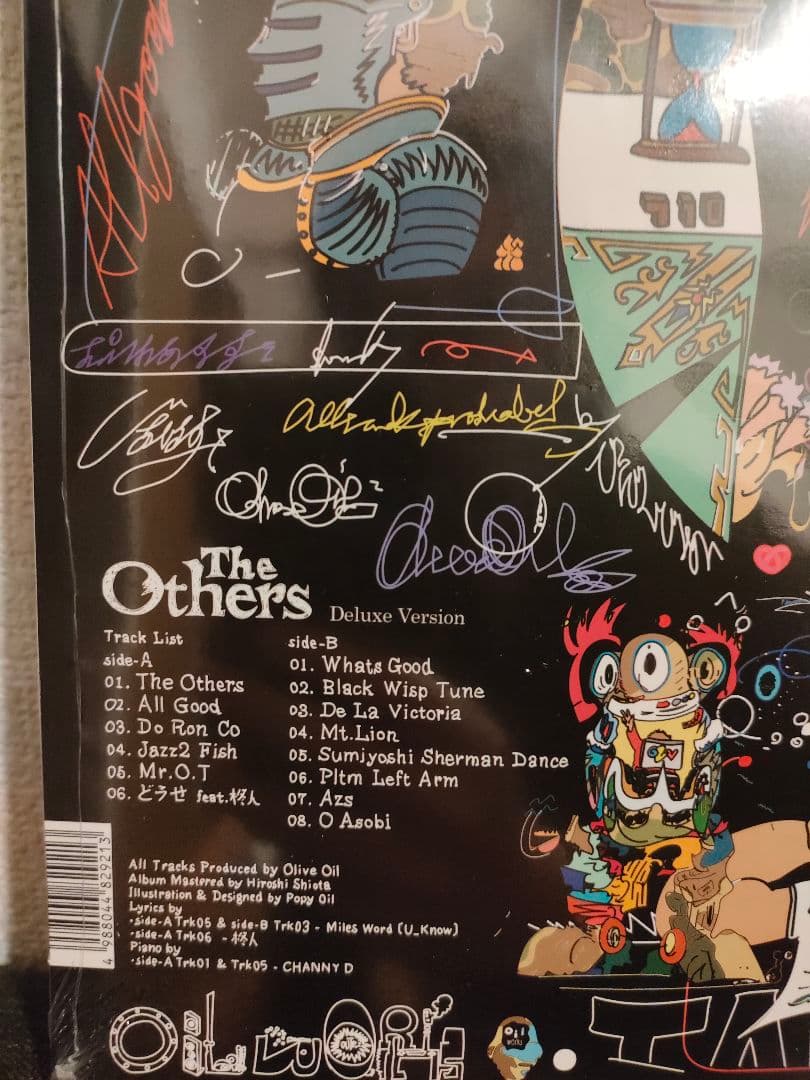 710
The
Others
Deluxe Version
Track List
side-A
01. The Others
02. All Good
03. Do Ron Co
04. Jazz2 Fish
05. Mr.O.T
06. どうせ feat.柊人
side-B
01. Whats Good
02. Black Wisp Tune
03. De La Victoria
04. Mt.Lion
05. Sumiyoshi Sherman Dance
06. Pltm Left Arm
07. Azs
08. O Asobi
All Tracks Produced by Olive Oil
Album Mastered by Hiroshi Shiota
Illustration & Designed by Popy Oil
Lyrics by
・side-A Trk05 & side-B Trk03 - Miles Word (U_Know)
・side-A Trk06 - 柊人
Piano by
・side-A Trk01 & Trk05 - CHANNY D
4 988044 829213
OILWORKS